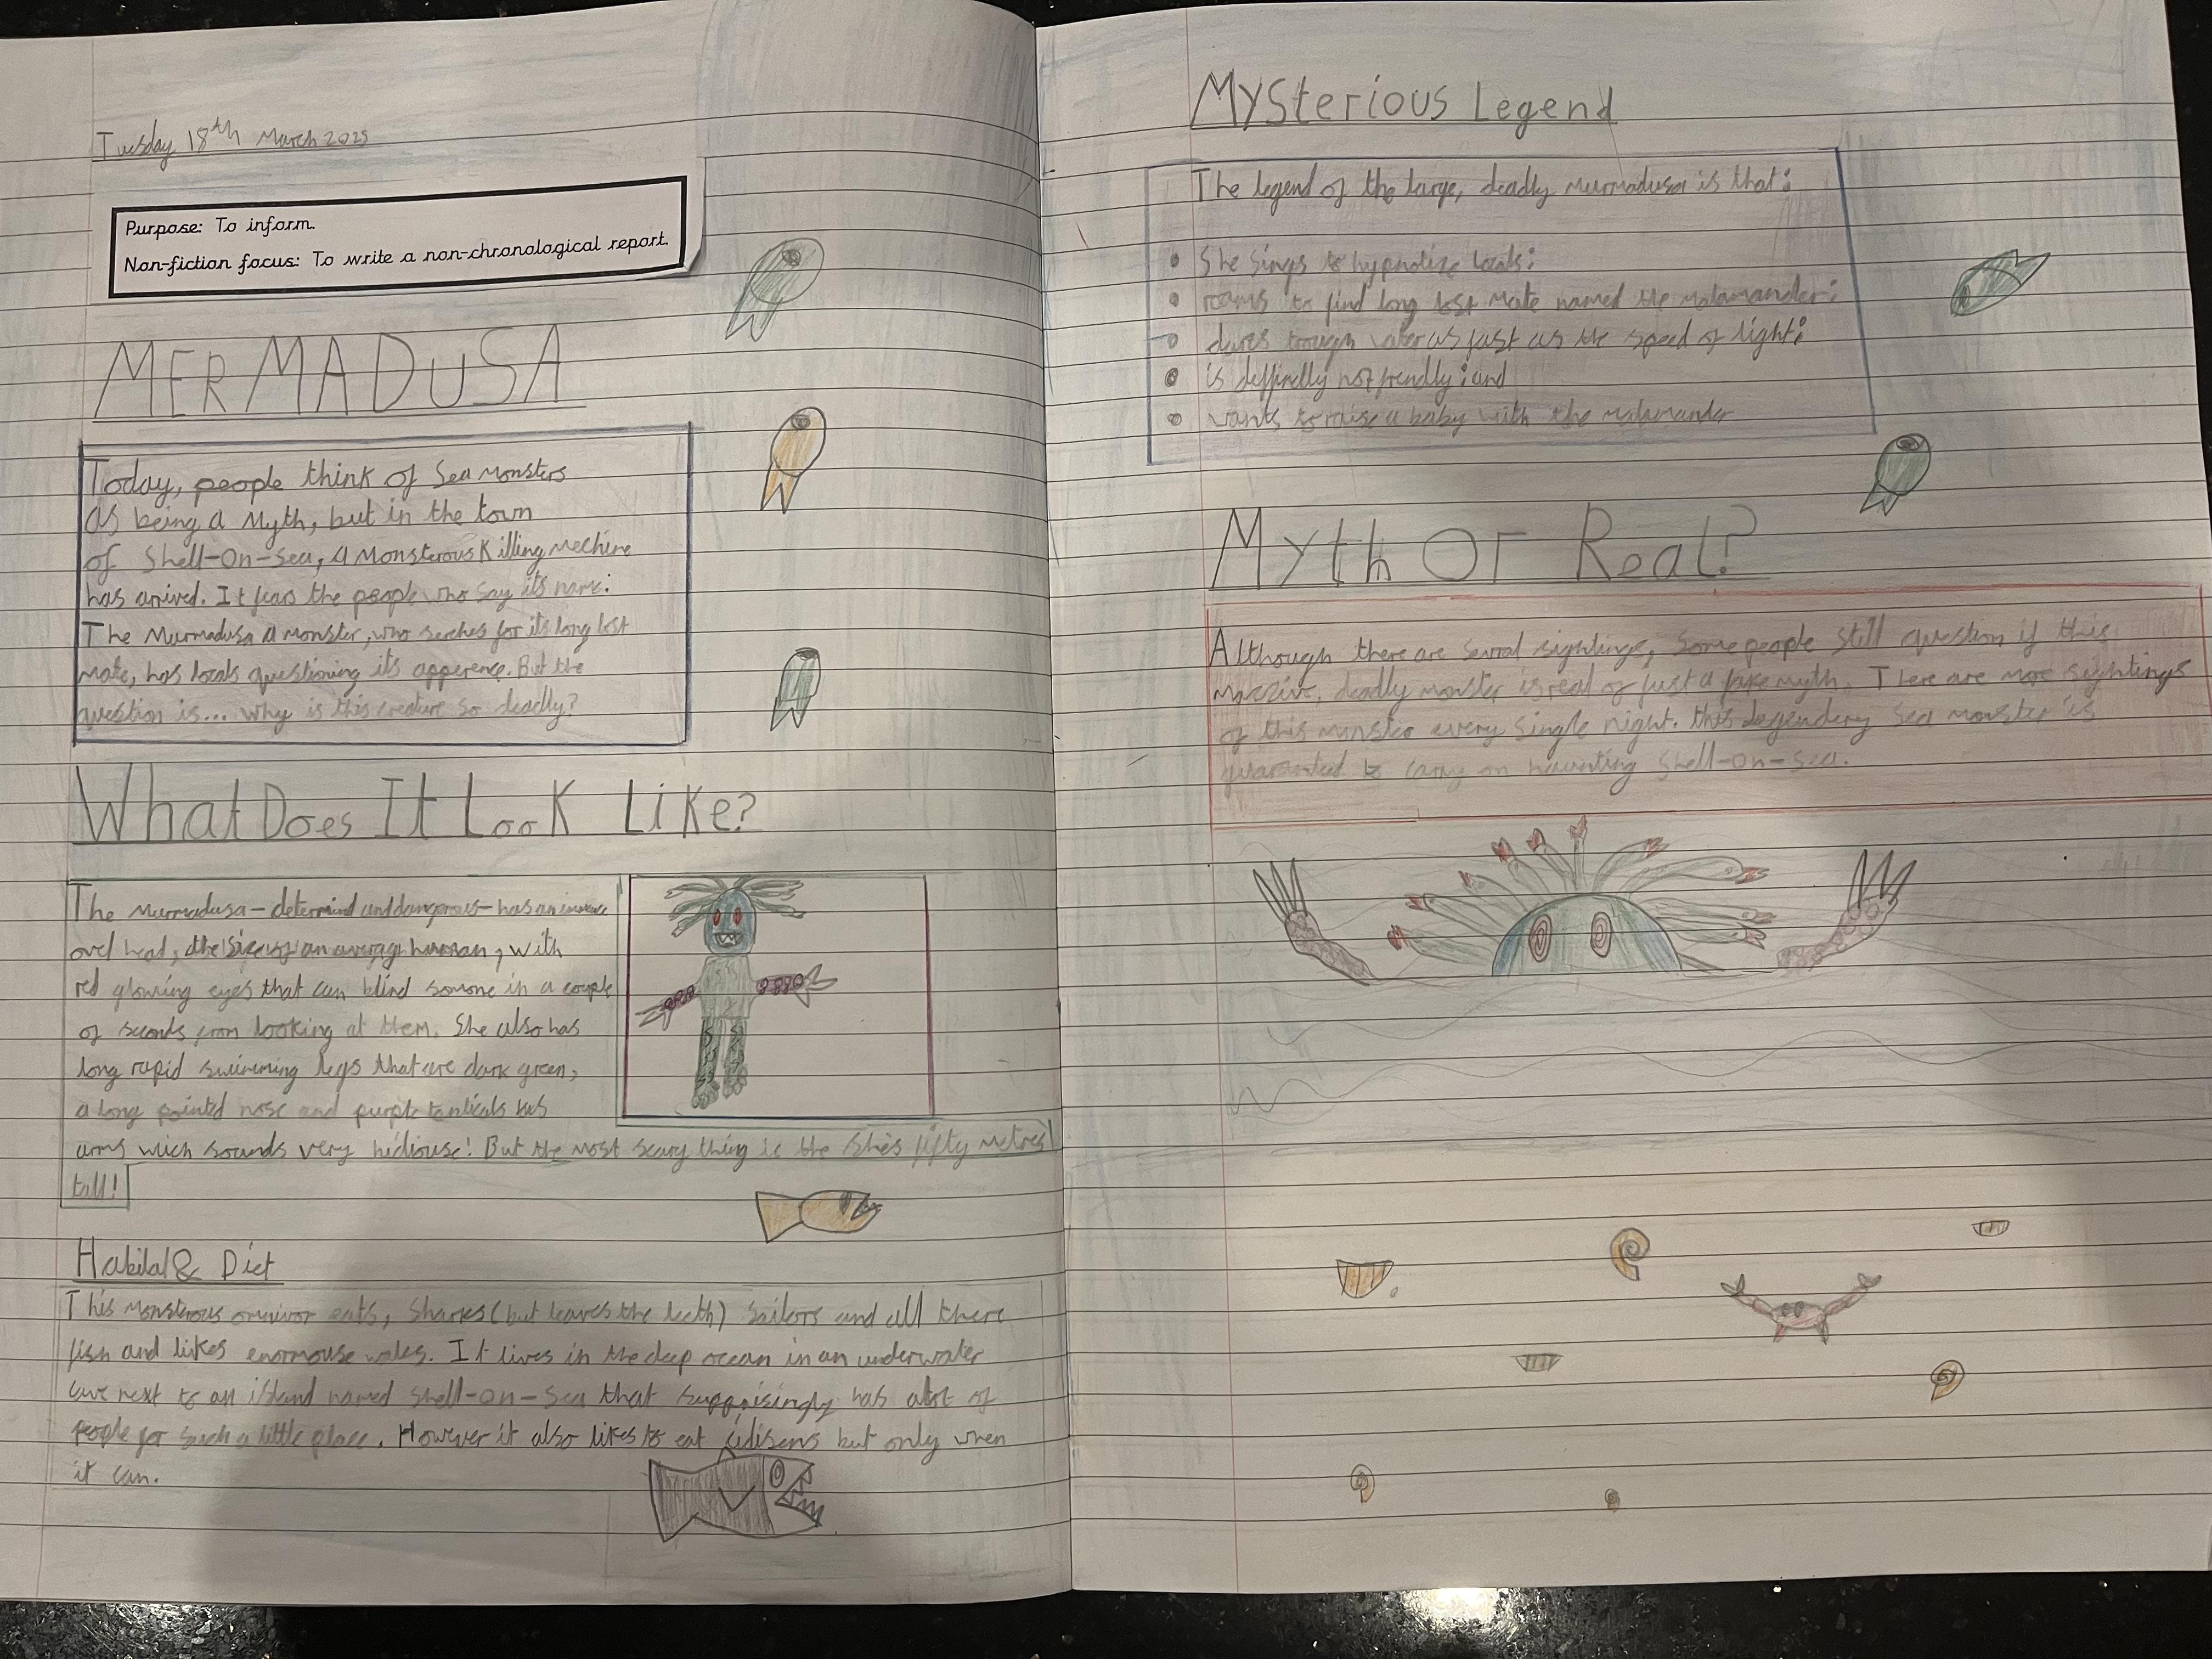 Tuesday 18th March 2025
Purpose: To inform.
Non-fiction focus: To write a non-chronological report.
MERMADUSA
Today, people think of Sea monsters
as being a myth, but in the town
of Shell-On-Sea, a monsterous Killing mechine
has arrived. It fears the people who say its name:
The Murmadusa a monster, who serches for its long lost
mate, has locals questioning its apperence. But the
question is... why is this creature so deadly?
What Does It Look Like?
The murmadusa - determind and dangerous - has an
ovel head, the size of an average human, with
red glowing eyes that can blind somone in a couple
of seconds from looking at them. She also has
long rapid swimming legs that are dark green,
a long pointed nose and purple tenticals has
arms wich sounds very hidiouse! But the most scary thing is the she's fifty metres
tall!
Habital & Diet
This monstrous omnivor eats, Sharks (but leaves the teeth) sailors and all there
fish and likes enormouse wales. It lives in the deep ocean in an underwater
cave next to an island named Shell-on-Sea that supprisingly has alot of
people for such a little place. However it also likes to eat cidisens but only when
it can.
Mysterious Legend
The legend of the large, deadly murmadusa is that:
• She Sings to hypnotize locals;
• roams to find long lost mate named the malamander;
• dives trough water as fast as the speed of light;
• is deffinelly not frendly; and
• wants to raise a baby with the malamander
Myth Or Real?
Although there are sevral sightings, Some people still question if this
massive, deadly monster is real of just a fake myth. There are more sightings
of this monster every single night. this legendery Sea monster is
guarented to carry on haunting Shell-on-Sea.